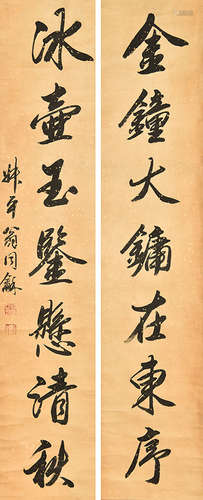 金鐘大鏞在東序
冰壺玉鑒懸清秋
叔平翁同龢